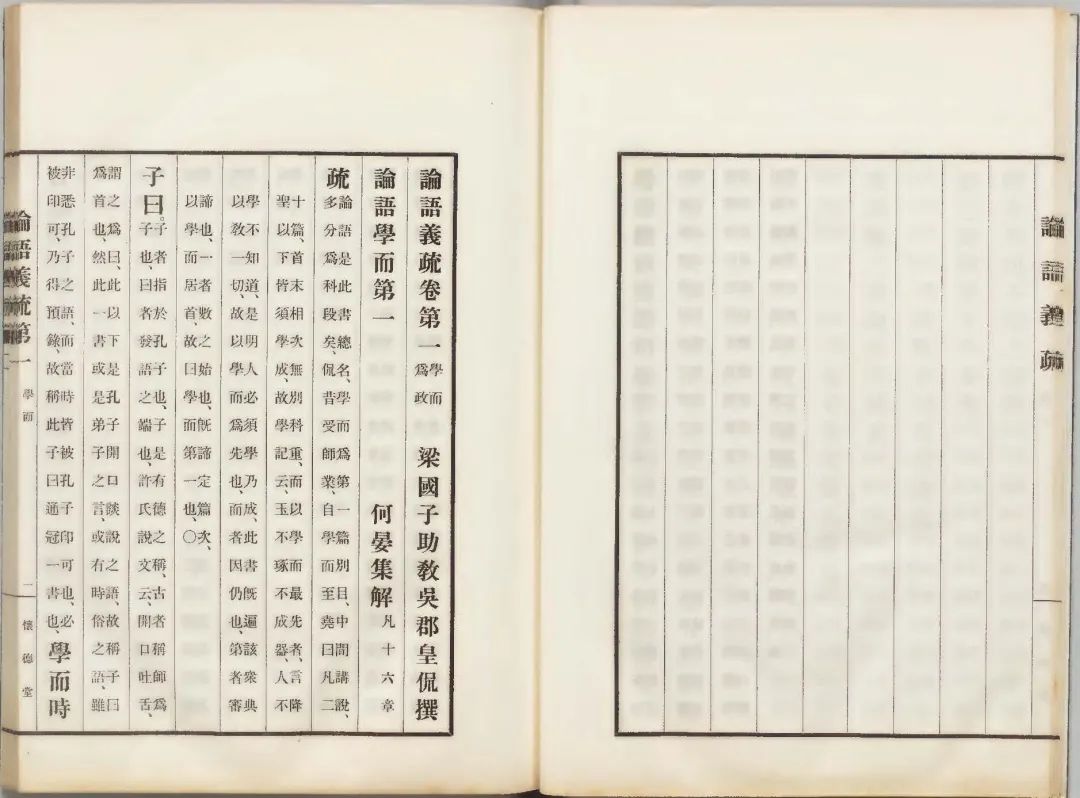 論語義疏
論語義疏卷第一
學而
爲政
梁國子助教吳郡皇侃撰
論語學而第一
何晏集解
凡十六章
疏
論語是此書總名、學而爲第一篇別目、中間講說、
多分爲科段矣、侃昔受師業、自學而至堯曰凡二
十篇、首末相次無別科重、而以學而最先者、言降
聖以下皆須學成、故學記云、玉不琢不成器、人不
學不知道、是明人必須學乃成、此書旣遍該衆典
以教一切、故以學而爲先也、而者因仍也、第者審
諦也、一者數之始也、旣諦定篇次、
以學而居首、故曰學而第一也、〇
子曰。
子者指於孔子也、子是有德之稱、古者稱師爲
子也、曰者發語之端也、許氏說文云、開口吐舌、
謂之爲曰、此以下是孔子開口談說之語、故稱子曰
爲首也、然此一書或是弟子之言、或有時俗之語、雖
非悉孔子之語、而當時皆被孔子印可也、必
被印可、乃得預錄、故稱此子曰通冠一書也、
學而時
論語義疏第一
學而
二
懷德堂